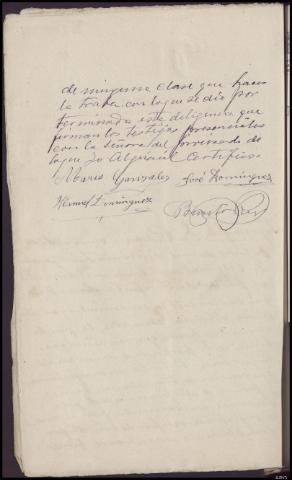 de ninguna clase que hacer
la traba con lo que se dio por
terminada esta diligencia que
firman los testigos presenciales
con la Señora del procesado de
lo que yo Alguacil Certifico
Maria Gonzales José Dominguez
Manuel Dominguez
Benito